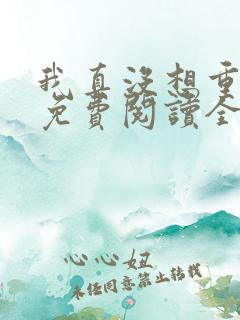 我真没想重
免费閱讀全
心心妞
未经同意禁止转载